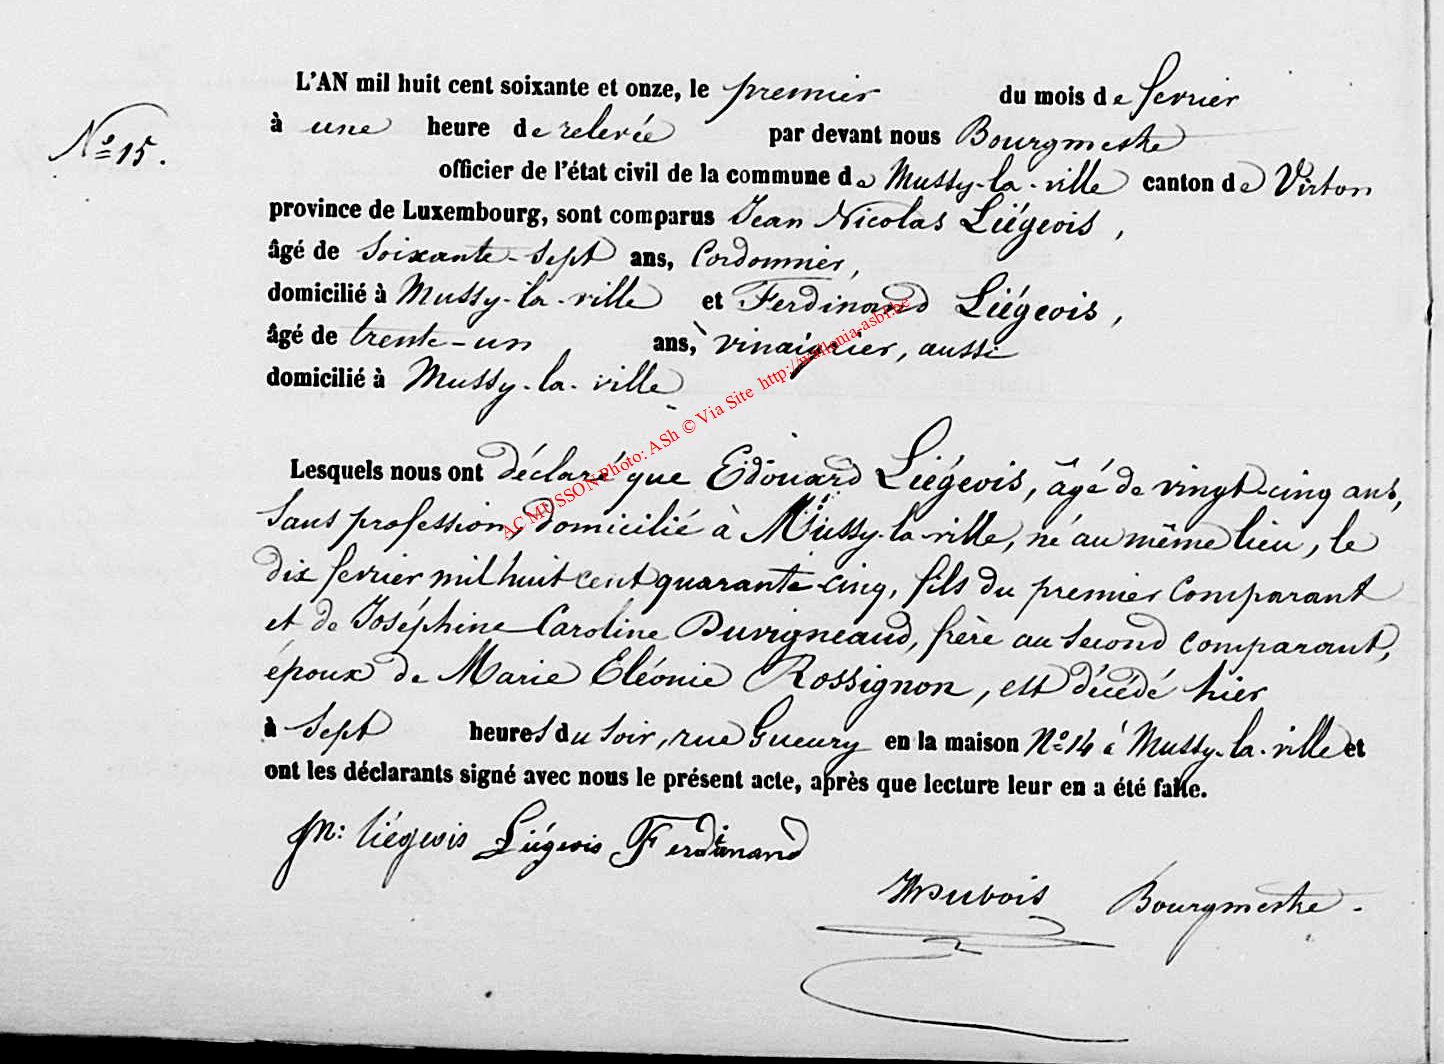 L'AN mil huit cent soixante et onze, le premier du mois de fevrier
N° 15.
à une heure de relevée par devant nous Bourgmestre
officier de l'état civil de la commune de Mussy-la-ville canton de Virton
province de Luxembourg, sont comparus Jean Nicolas Liégeois,
âgé de soixante-sept ans, Cordonnier,
domicilié à Mussy-la-ville et Ferdinand Liégeois,
âgé de trente-un ans, vinaigrier, aussi
domicilié à Mussy-la-ville
AC MUSSON Photo: ASh © Via Site http://wallonia-asbl.be
Lesquels nous ont déclaré que Edouard Liégeois, âgé de vingt-cinq ans,
sans profession, domicilié à Mussy-la-ville, né au même lieu, le
dix fevrier mil huit cent quarante-cinq, fils du premier comparant
et de Joséphine Caroline Duvigneaud, frère au second comparant,
époux de Marie Eléonie Rossignon, est décédé hier
à sept heures du soir, rue Gueury en la maison N° 14 à Mussy-la-ville et
ont les déclarants signé avec nous le présent acte, après que lecture leur en a été faite.
jn: liégeois Liégeois Ferdinand
Dubois Bourgmestre.